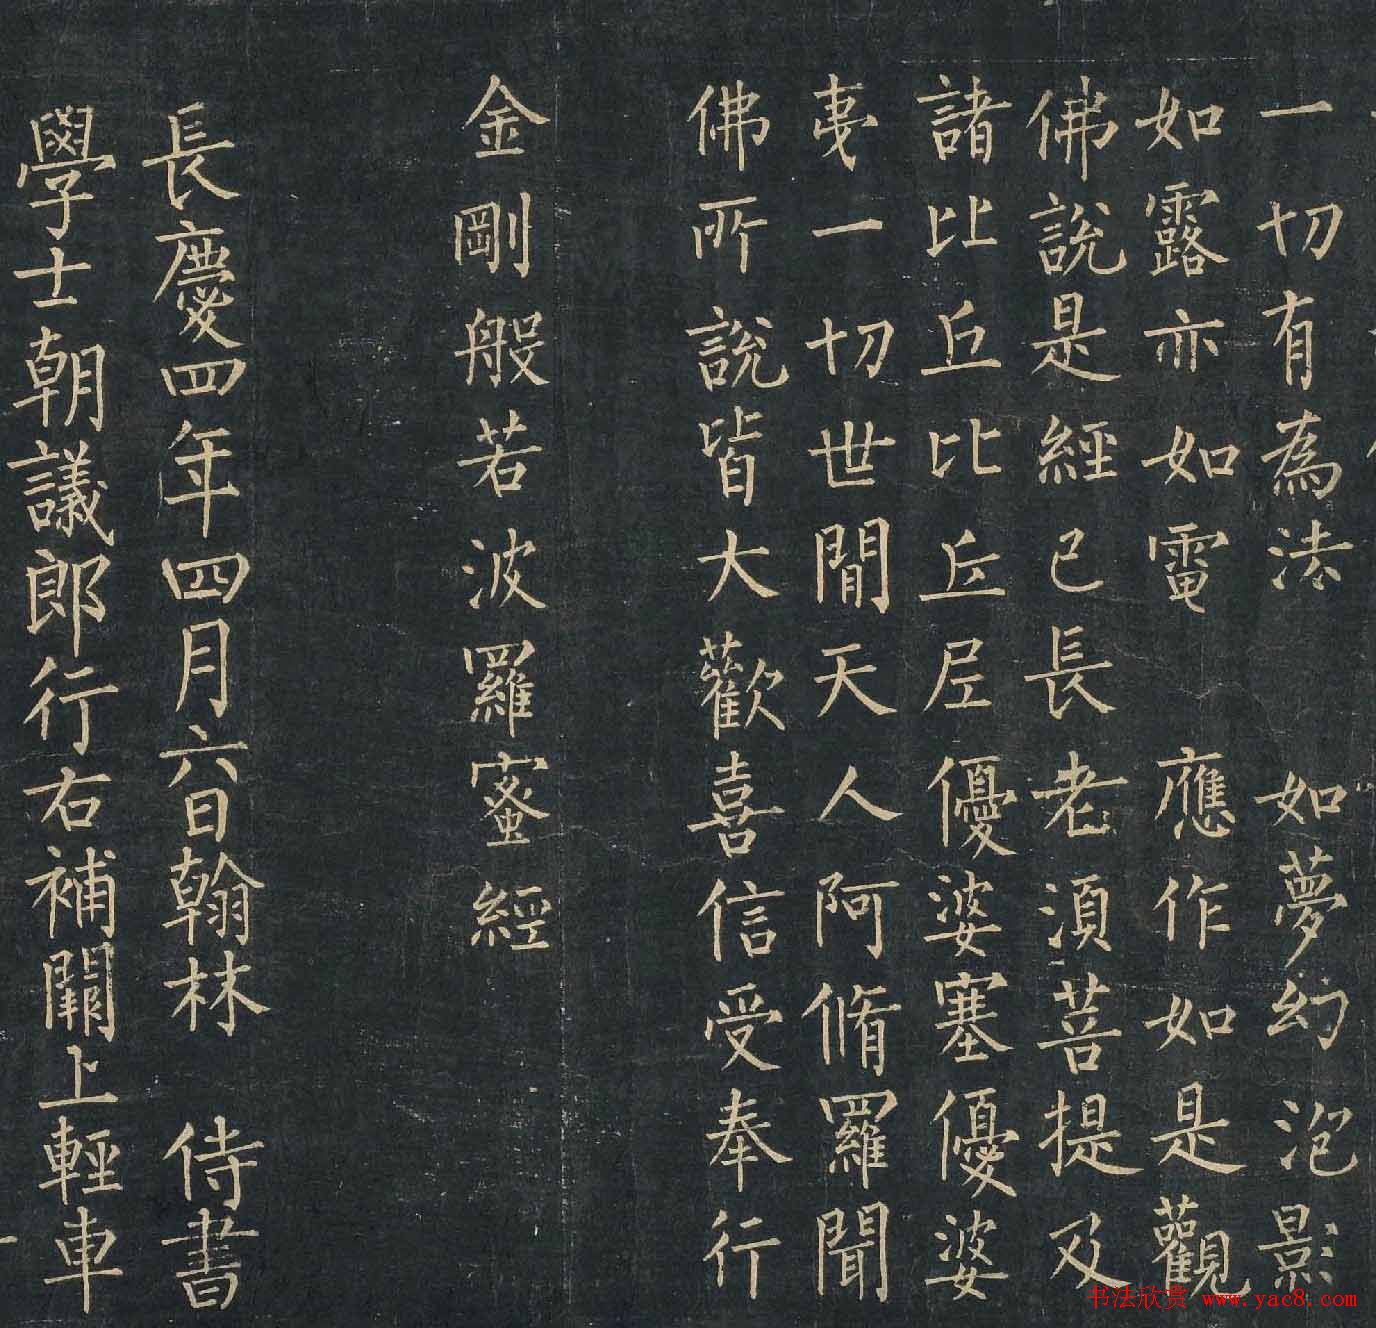 一切有為法　如夢幻泡影
如露亦如電　應作如是觀
佛說是經已長老湏菩提及
諸比丘比丘尼優婆塞優婆
夷一切世間天人阿脩羅聞
佛所說皆大歡喜信受奉行
金剛般若波羅蜜經
長慶四年四月六日翰林　侍書
學士朝議郎行右補闕上輕車
书法欣赏 www.yac8.com